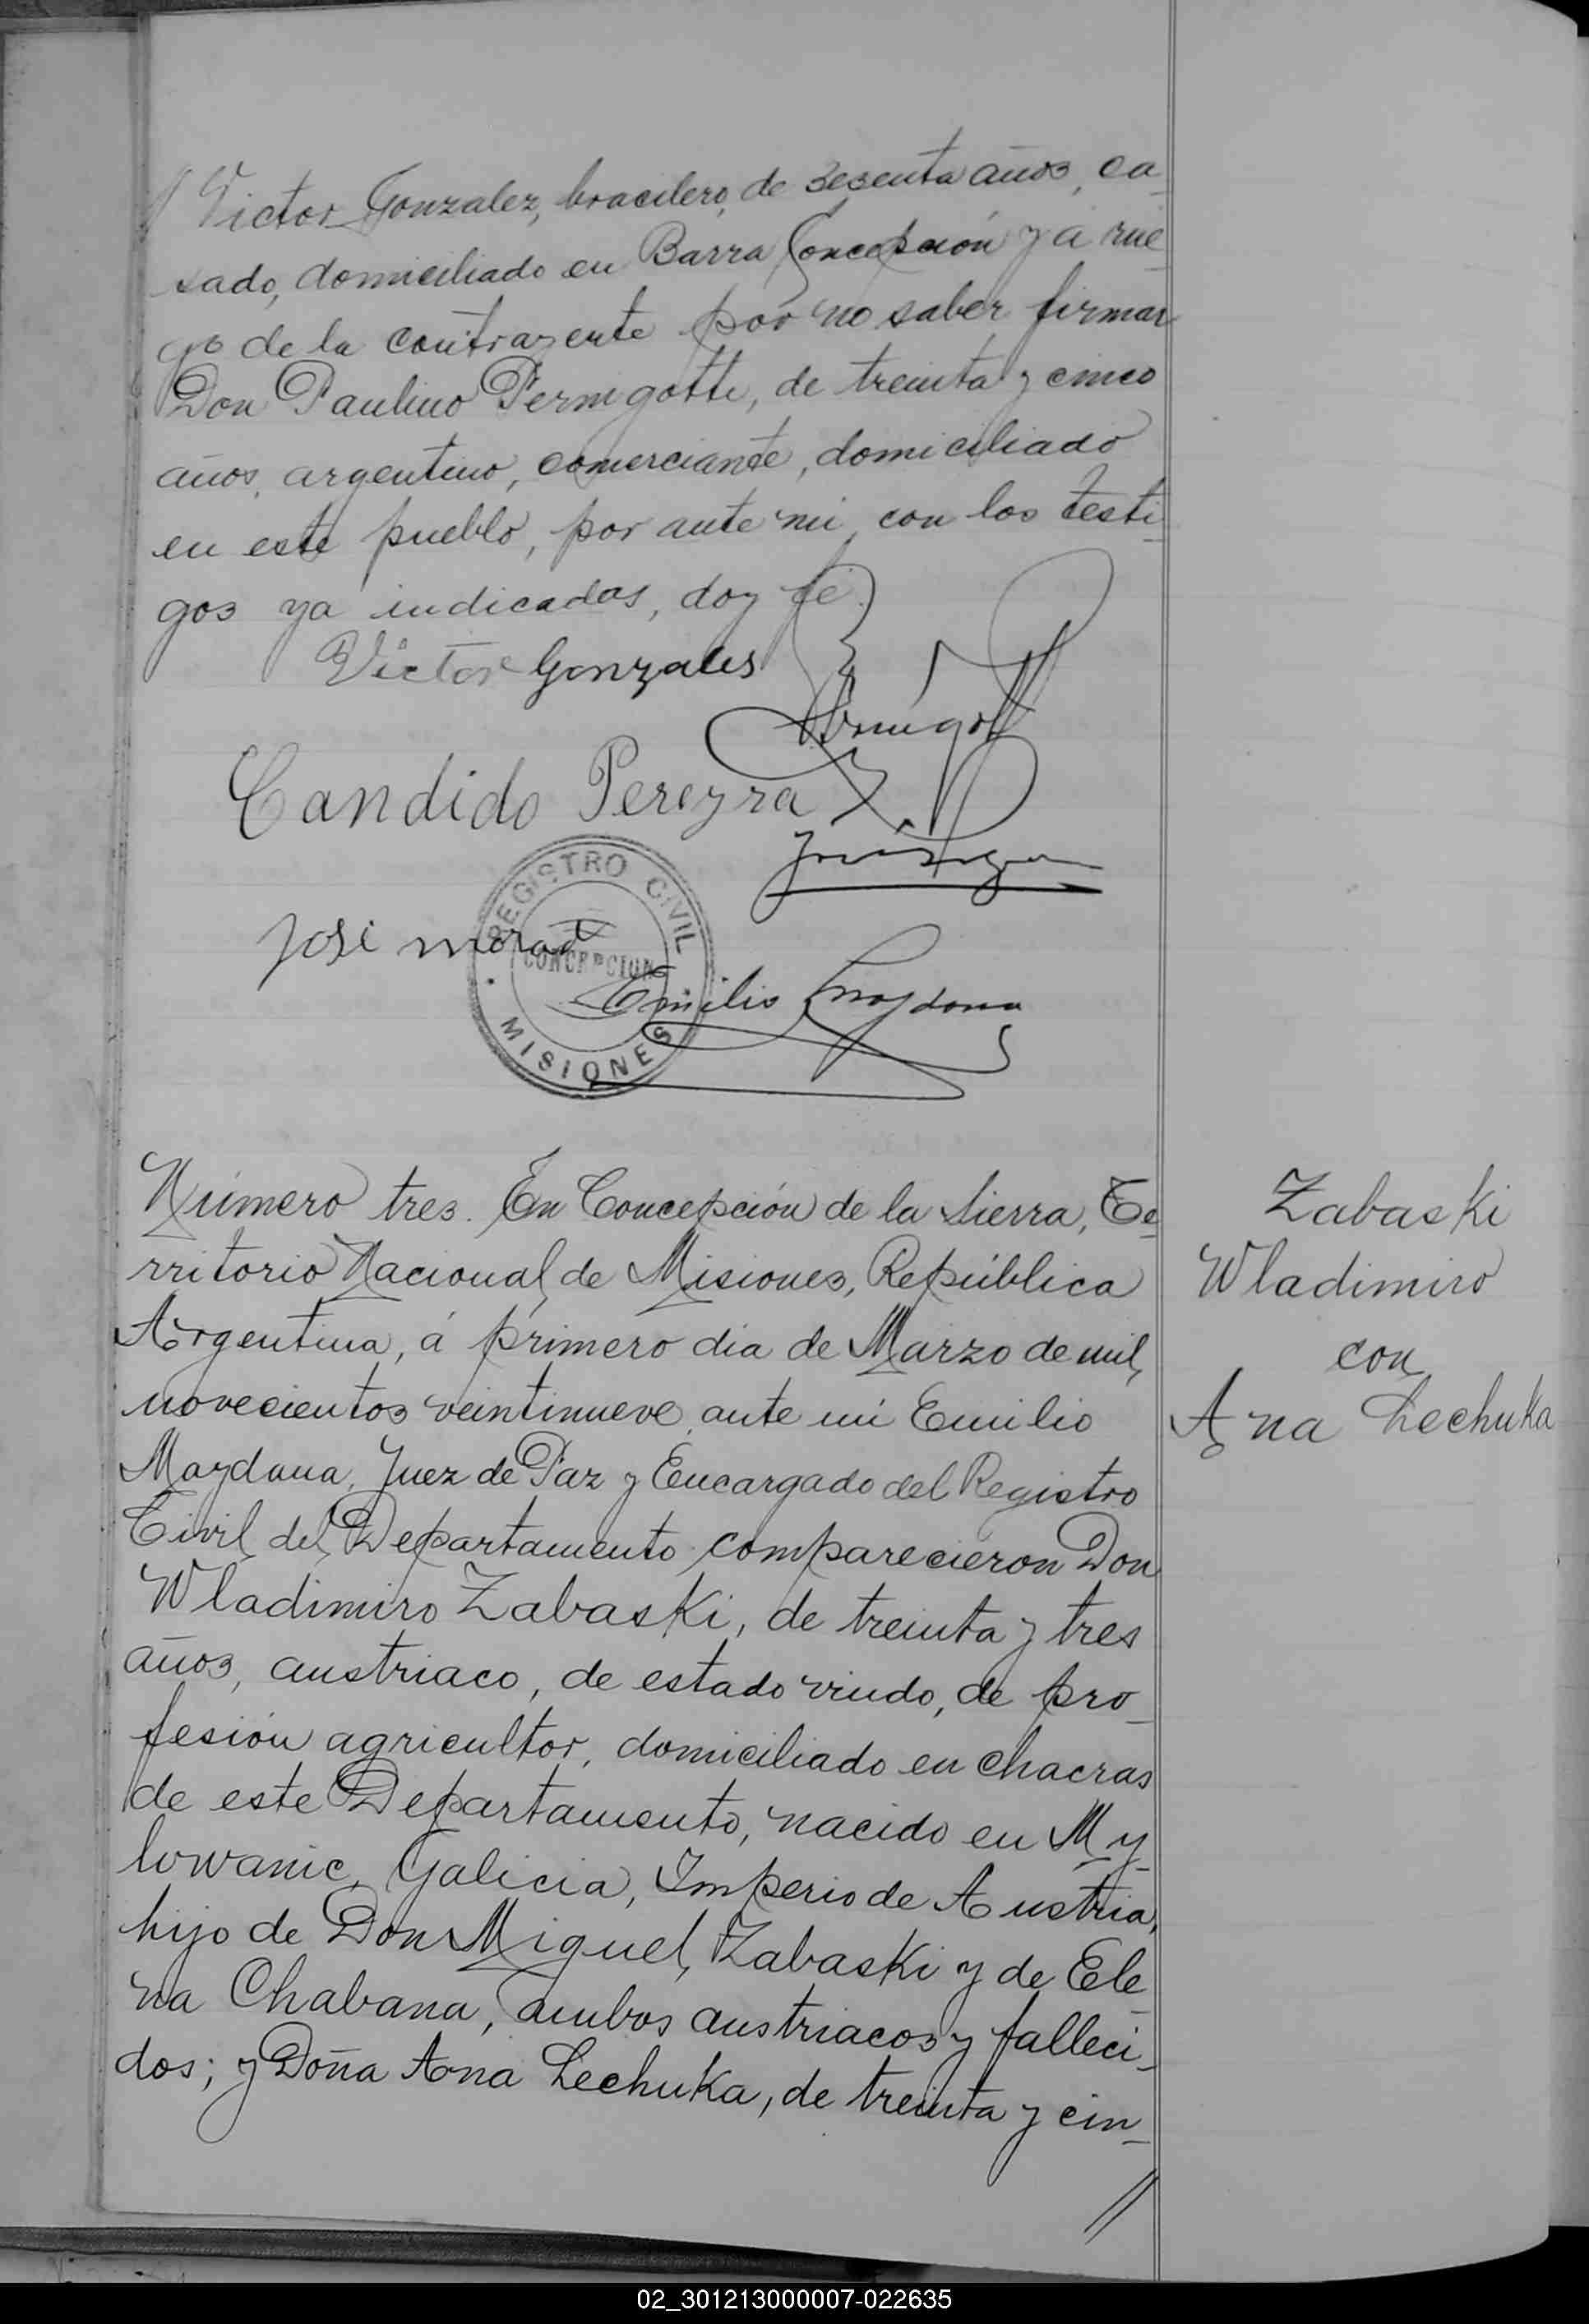 // Victor Gonzalez, bracilero, de sesenta años, ca-
sado, domiciliado en Barra Concepción y á rue-
go de la contrayente por no saber firmar
Don Paulino Pernigotti, de treinta y cinco
años, argentino, comerciante, domiciliado
en este pueblo, por ante mi, con los testi-
gos ya indicados, doy fé.
Victor Gonzales
Candido Pereyra
REGISTRO CIVIL
CONCEPCION
MISIONES
José morad
Emilio Maydana
Número tres. En Concepción de la Sierra, Te-
rritorio Nacional de Misiones, República
Argentina, á primero dia de Marzo de mil
novecientos veintinueve, ante mi Emilio
Maydana, Juez de Paz y Encargado del Registro
Civil del Departamento comparecieron Don
Wladimiro Zabaski, de treinta y tres
años, austriaco, de estado viudo, de pro-
fesión agricultor, domiciliado en chacras
de este Departamento, nacido en My-
lowanic, Galicia, Imperio de Austria,
hijo de Don Miguel Zabaski y de Ele-
na Chabana, ambos austriacos y falleci-
dos; y Doña Ana Lechuka, de treinta y cin-
//
Zabaski
Wladimiro
con
Ana Lechuka
02_301213000007-022635